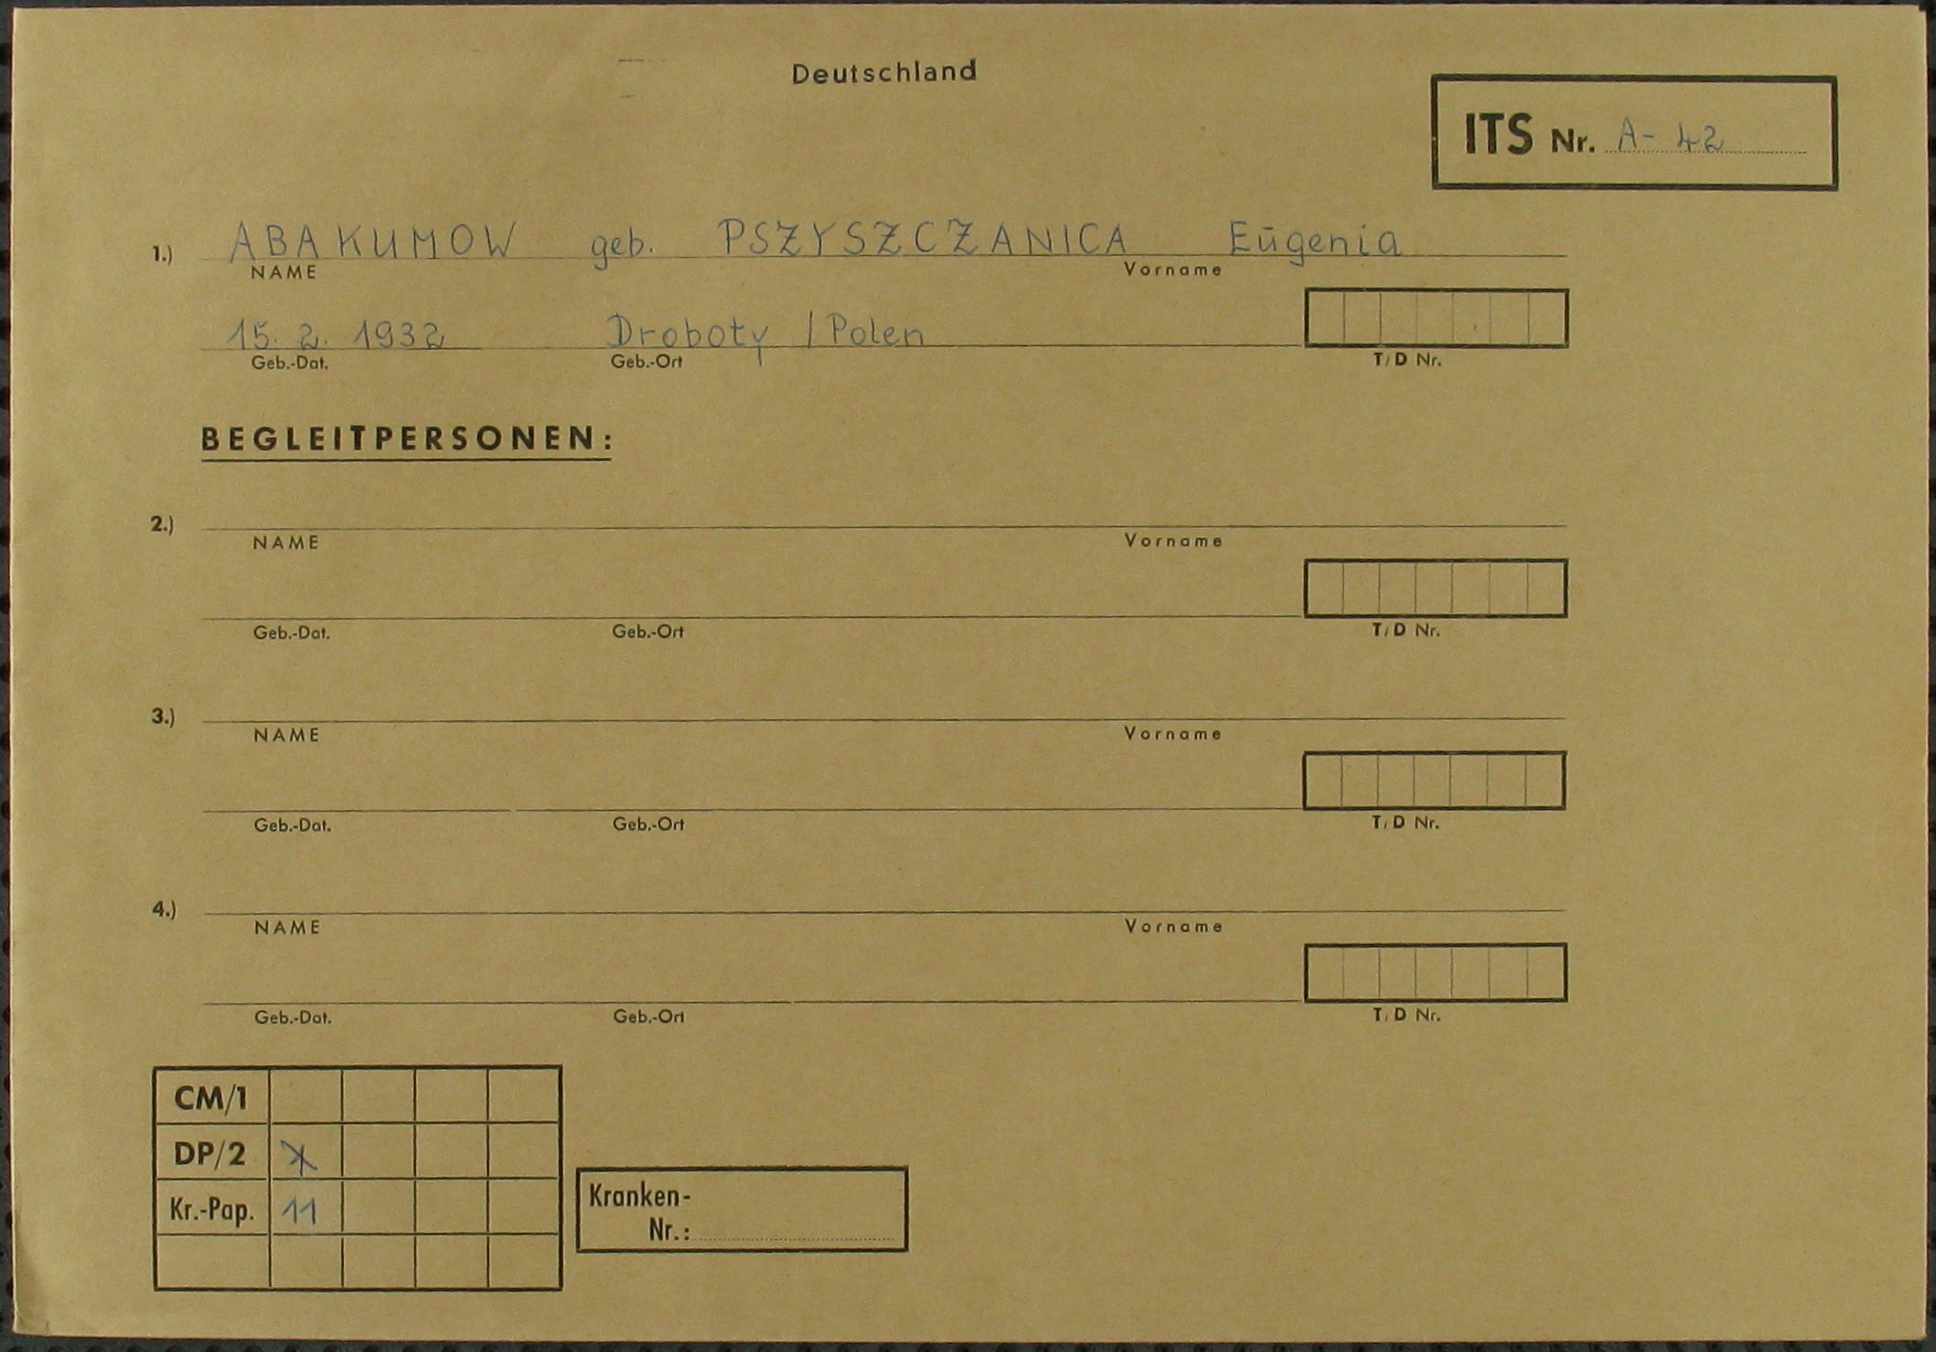 Deutschland
ITS Nr. A- 42
1.) ABAKUMOW geb. PSZYSZCZANICA Eugenia
NAME Vorname
15. 2. 1932 Droboty / Polen
Geb.-Dat. Geb.-Ort T/D Nr.
BEGLEITPERSONEN:
2.)
NAME Vorname
Geb.-Dat. Geb.-Ort T/D Nr.
3.)
NAME Vorname
Geb.-Dat. Geb.-Ort T/D Nr.
4.)
NAME Vorname
Geb.-Dat. Geb.-Ort T/D Nr.
CM/1
DP/2 X
Kr.-Pap. 11
Kranken-
Nr.: